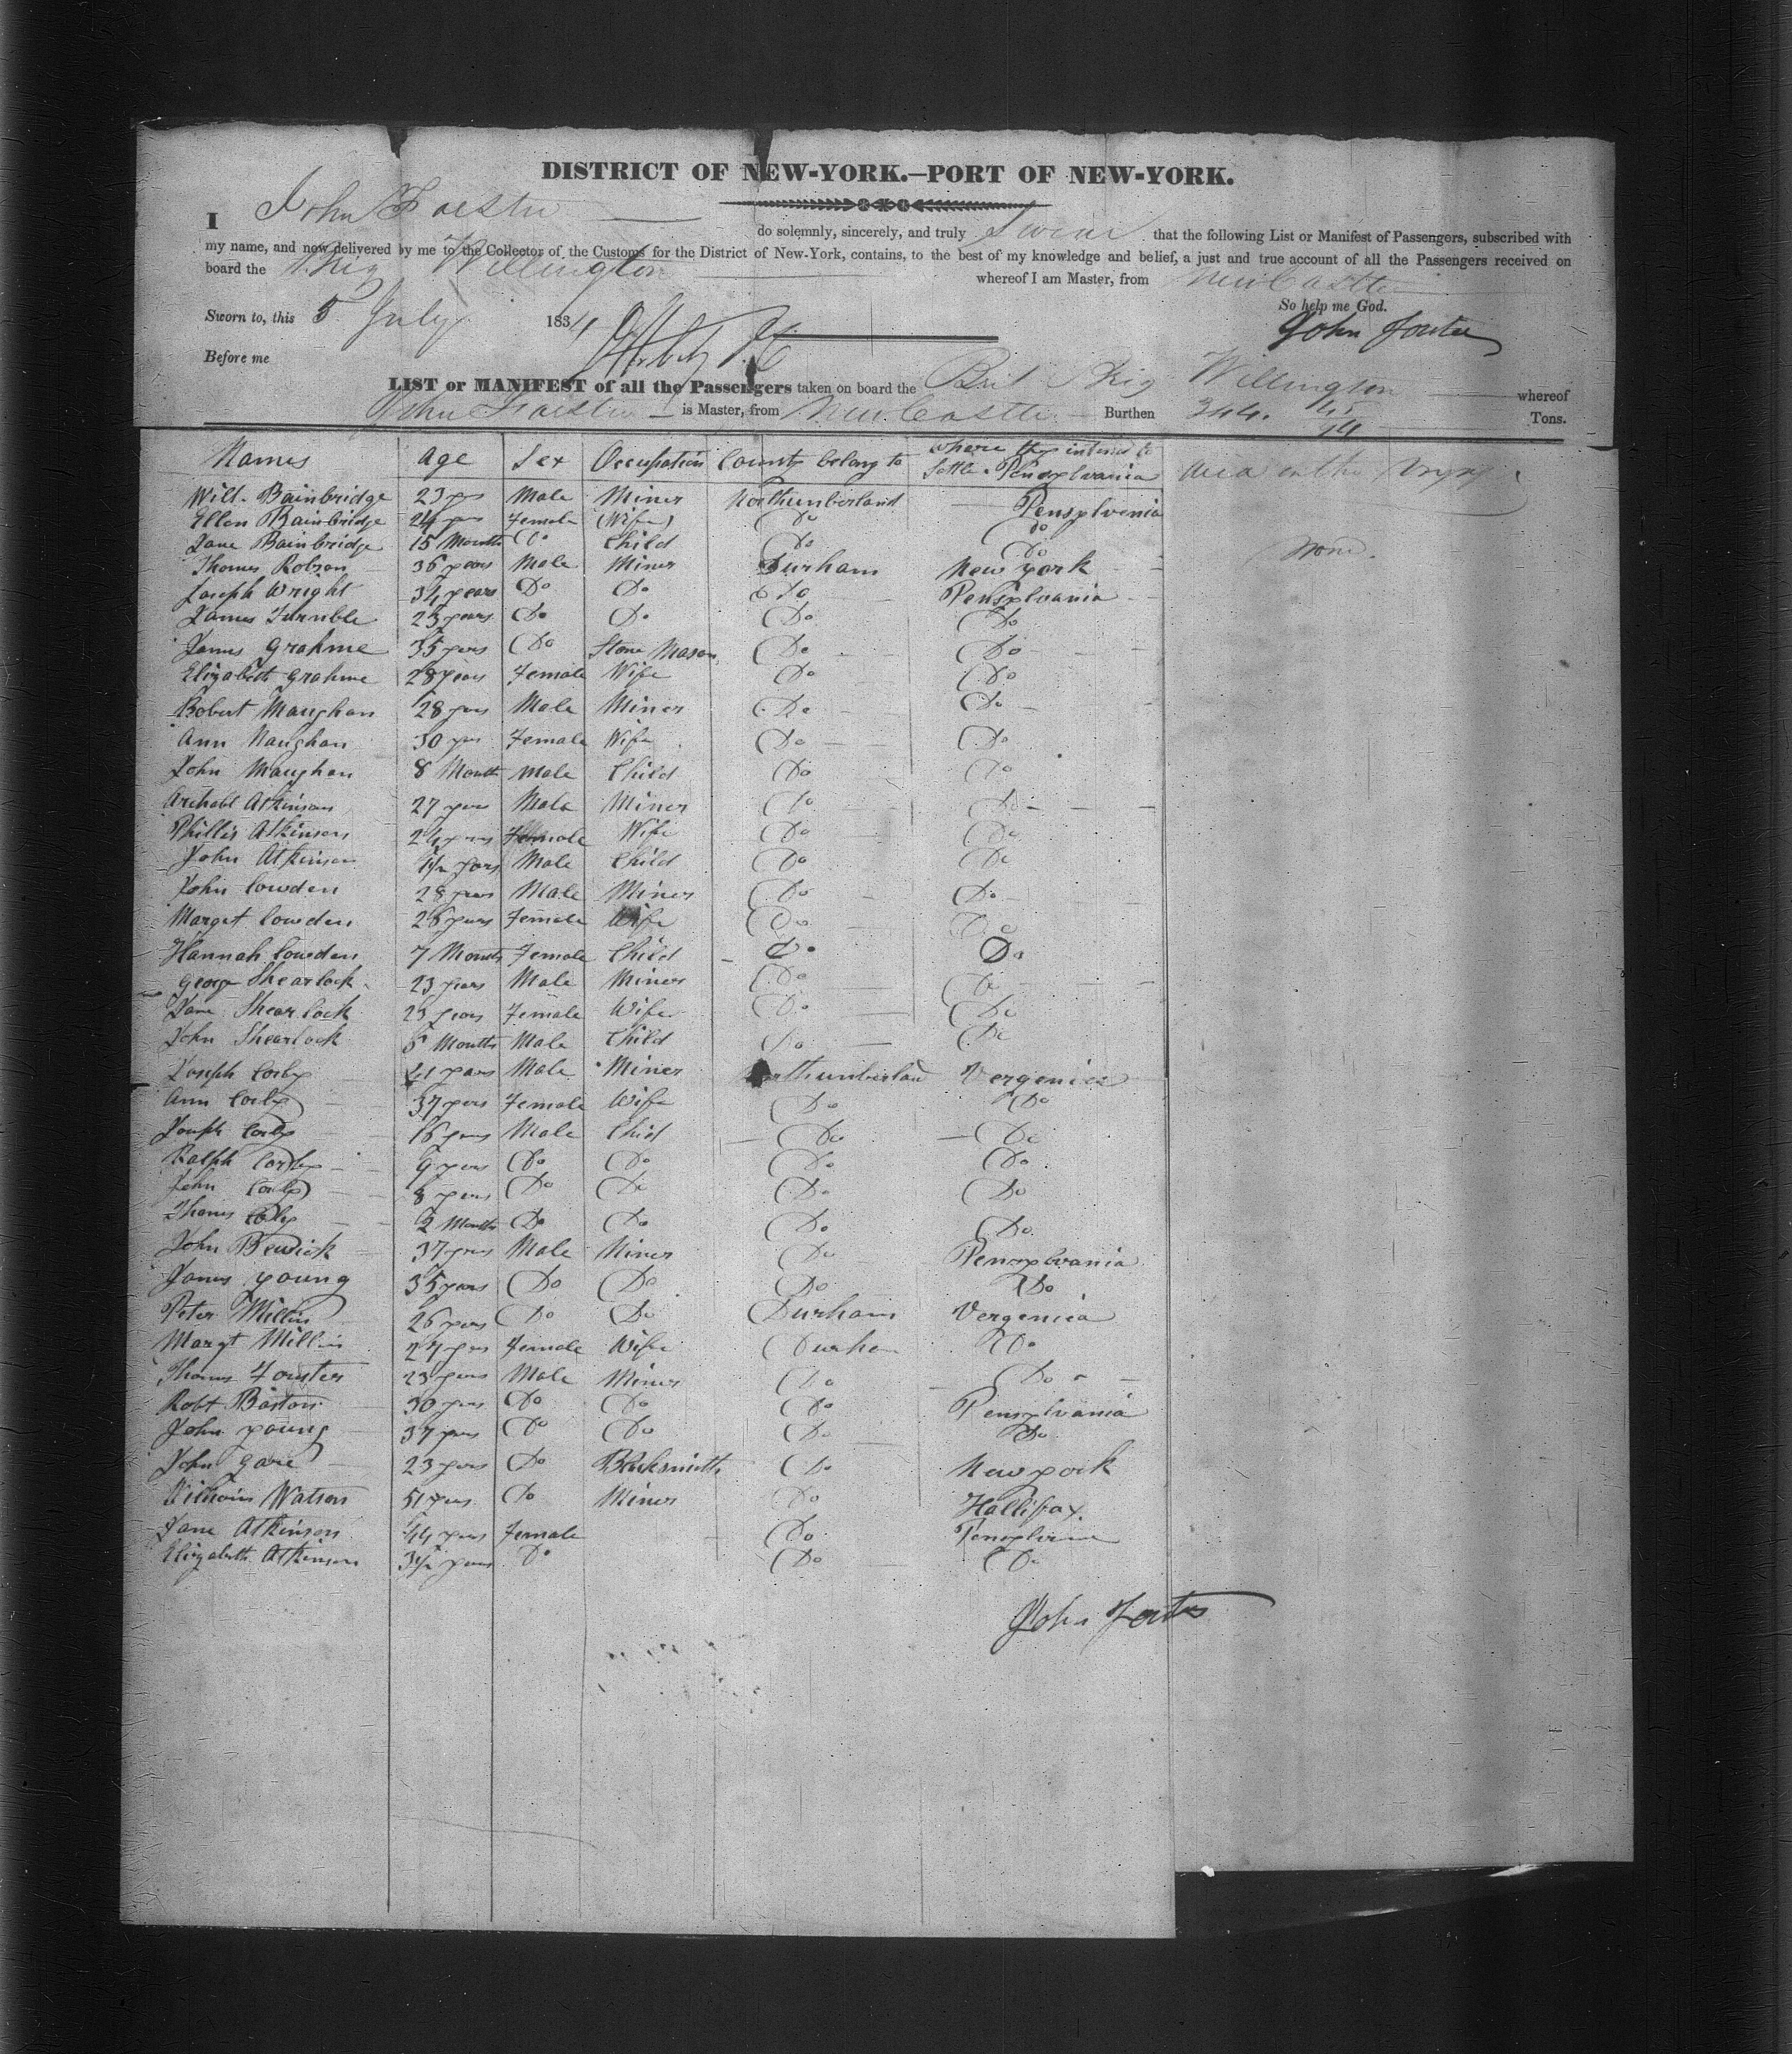 DISTRICT OF NEW-YORK.—PORT OF NEW-YORK.
I John Foester do solemnly, sincerely, and truly Swear that the following List or Manifest of Passengers, subscribed with
my name, and now delivered by me to the Collector of the Customs for the District of New-York, contains, to the best of my knowledge and belief, a just and true account of all the Passengers received on
board the Brig Willington whereof I am Master, from New Castle
So help me God.
Sworn to, this 5 July 1834 John Foster
Before me
LIST or MANIFEST of all the Passengers taken on board the Brit Brig Willington whereof
John Foester is Master, from New Castle Burthen 344. Tons.
Names Age Sex Occupation County belong to where they intend to
Settle Pensylvania
Died on the
Will. Bainbridge 23 yrs Male Miner Northumberland Pensylvenia
Ellen Bainbridge 24 yrs Female (Wife) Do do
Jane Bainbridge 15 Months Do Child Do Do
none.
Thomas Robson 36 years Male Miner Durham New york
Joseph Wright 34 years Do Do Do Pensylvania
James Turnble 25 years Do Do Do Do
James Grahme 35 years Do Stone Mason Do Do
Elizabeth Grahme 28 years Female Wife Do Do
Robert Maughan 28 years Male Miner Do Do
Ann Maughan 30 yrs Female Wife Do Do
John Maughan 8 Month Male Child Do Do
Archabl Atkinson 27 years Male Miner Do Do
Phillis Atkinson 24 years Female Wife Do Do
John Atkinson 1½ years Male Child Do Do
John Lowden 28 years Male Miner Do Do
Marget Lowden 26 years Female Wife Do Do
Hannah Lowden 7 Months Female Child Do Do
George Shearlock 23 years Male Miner Do Do
Jane Shearlock 23 years Female Wife Do Do
John Shearlock 5 Months Male Child Do Do
Joseph Corby 41 years Male Miner Northumberland Vergenica
Ann Corby 37 years Female Wife Do Do
Joseph Corby 16 years Male Chid Do Do
Ralph Corby 9 years Do Do Do Do
John Corby 8 years Do Do Do Do
Thomas Corby 2 Months Do Do Do Do
John Bewick 37 years Male Miner Do Pensylvania
James Young 35 years Do Do Do Do
Peter Millin 26 years Do Do Durham Vergenica
Margt Millin 27 years Female Wife Durham Do
Thomas Fouster 23 years Male Miner Do Do
Robt Barton 30 years Do Do Do Pensylvania
John young 37 years Do Do Do Do
John Gare 23 years Do Blacksmith Do New york
William Watson 51 years Do Miner Do Hallifax
Jane Atkinson 44 years Female Do Pensylvina
Elizabeth Atkinson 3½ years Do Do Do
John Foster